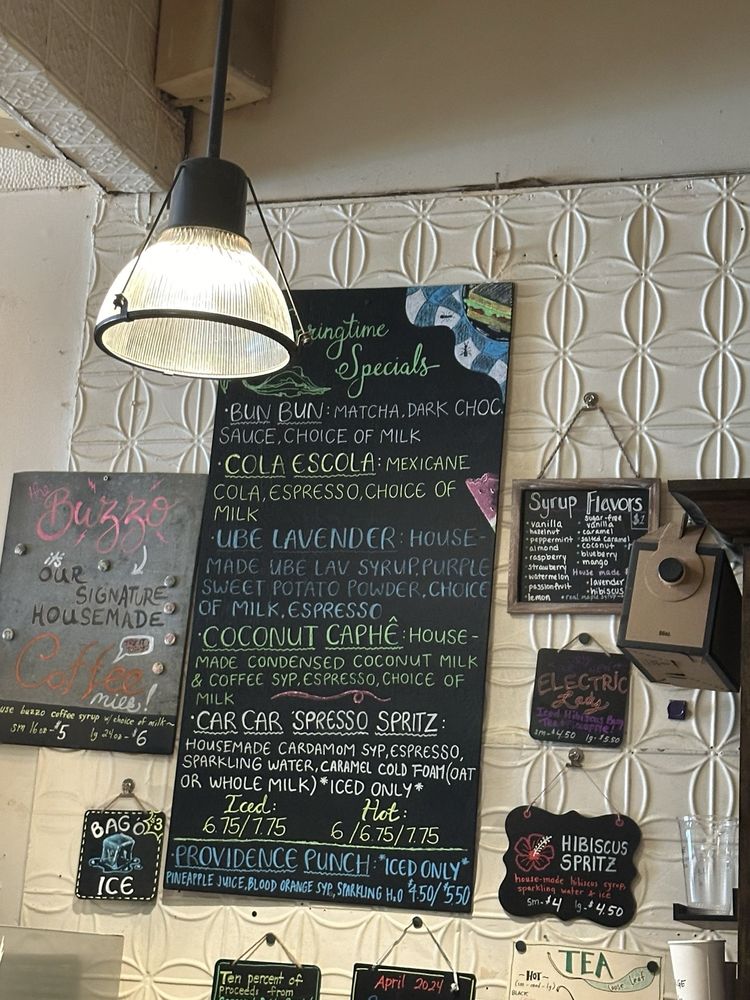 Springtime
Specials
·BUN BUN: MATCHA, DARK CHOC.
SAUCE, CHOICE OF MILK
·COLA ESCOLA: MEXICANE
COLA, ESPRESSO, CHOICE OF
MILK
·UBE LAVENDER: HOUSE-
MADE UBE LAV SYRUP, PURPLE
SWEET POTATO POWDER, CHOICE
OF MILK, ESPRESSO
·COCONUT CAPHÊ: HOUSE-
MADE CONDENSED COCONUT MILK
& COFFEE SYP, ESPRESSO, CHOICE OF
MILK
·CAR CAR SPRESSO SPRITZ:
HOUSEMADE CARDAMOM SYP, ESPRESSO,
SPARKLING WATER, CARAMEL COLD FOAM (OAT
OR WHOLE MILK) *ICED ONLY*
Iced: Hot:
6.75/7.75 6/6.75/7.75
·PROVIDENCE PUNCH: *ICED ONLY*
PINEAPPLE JUICE, BLOOD ORANGE SYP, SPARKLING H2O $4.50/$5.50
the
Buzzo
it's
OUR
SIGNATURE
HOUSEMADE
Coffee
milks!
use buzzo coffee syrup w/ choice of milk~
sm 16oz-$5 lg 24oz-$6
BAG O $3
ICE
Syrup Flavors
$1
·vanilla
hazelnut
·peppermint
·almond
·raspberry
·strawberry
·watermelon
·passionfruit
·lemon
·sugar-free
vanilla
·caramel
·salted caramel
·coconut
·blueberry
·mango
House made
·lavender
·hibiscus
ELECTRIC
Lady
Iced Hibiscus
sm-$4.50 lg-$5.50
HIBISCUS
SPRITZ
house-made hibiscus syrup,
sparkling water & ice
sm-$4 lg-$4.50
TEA
loose leaf
~Hot~
(sm-md-lg)
BLACK
Ten percent of
proceeds from
April 2024